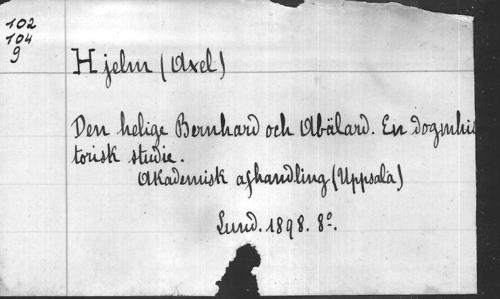 102
104
9
Hjelm (Axel)
Den helige Bernhard och Abälard. En dogmhis
torisk studie.
Akademisk afhandling (Uppsala)
Lund. 1898. 8º.